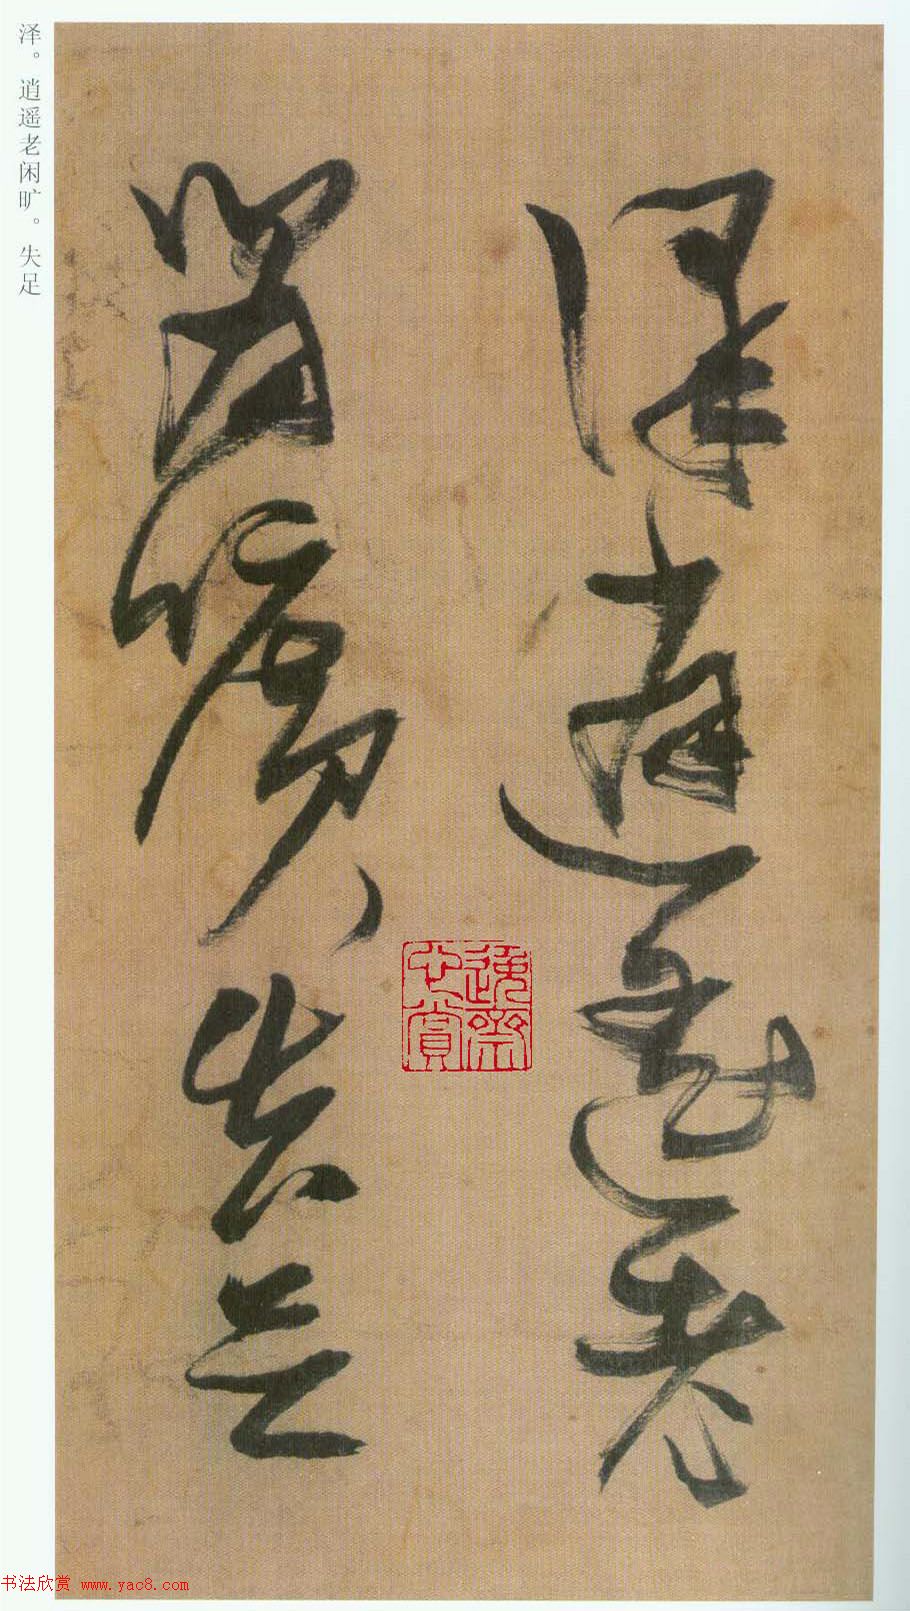 澤逍遥老
閒曠失足
泽。逍遥老闲旷。失足
书法欣赏 www.yac8.com